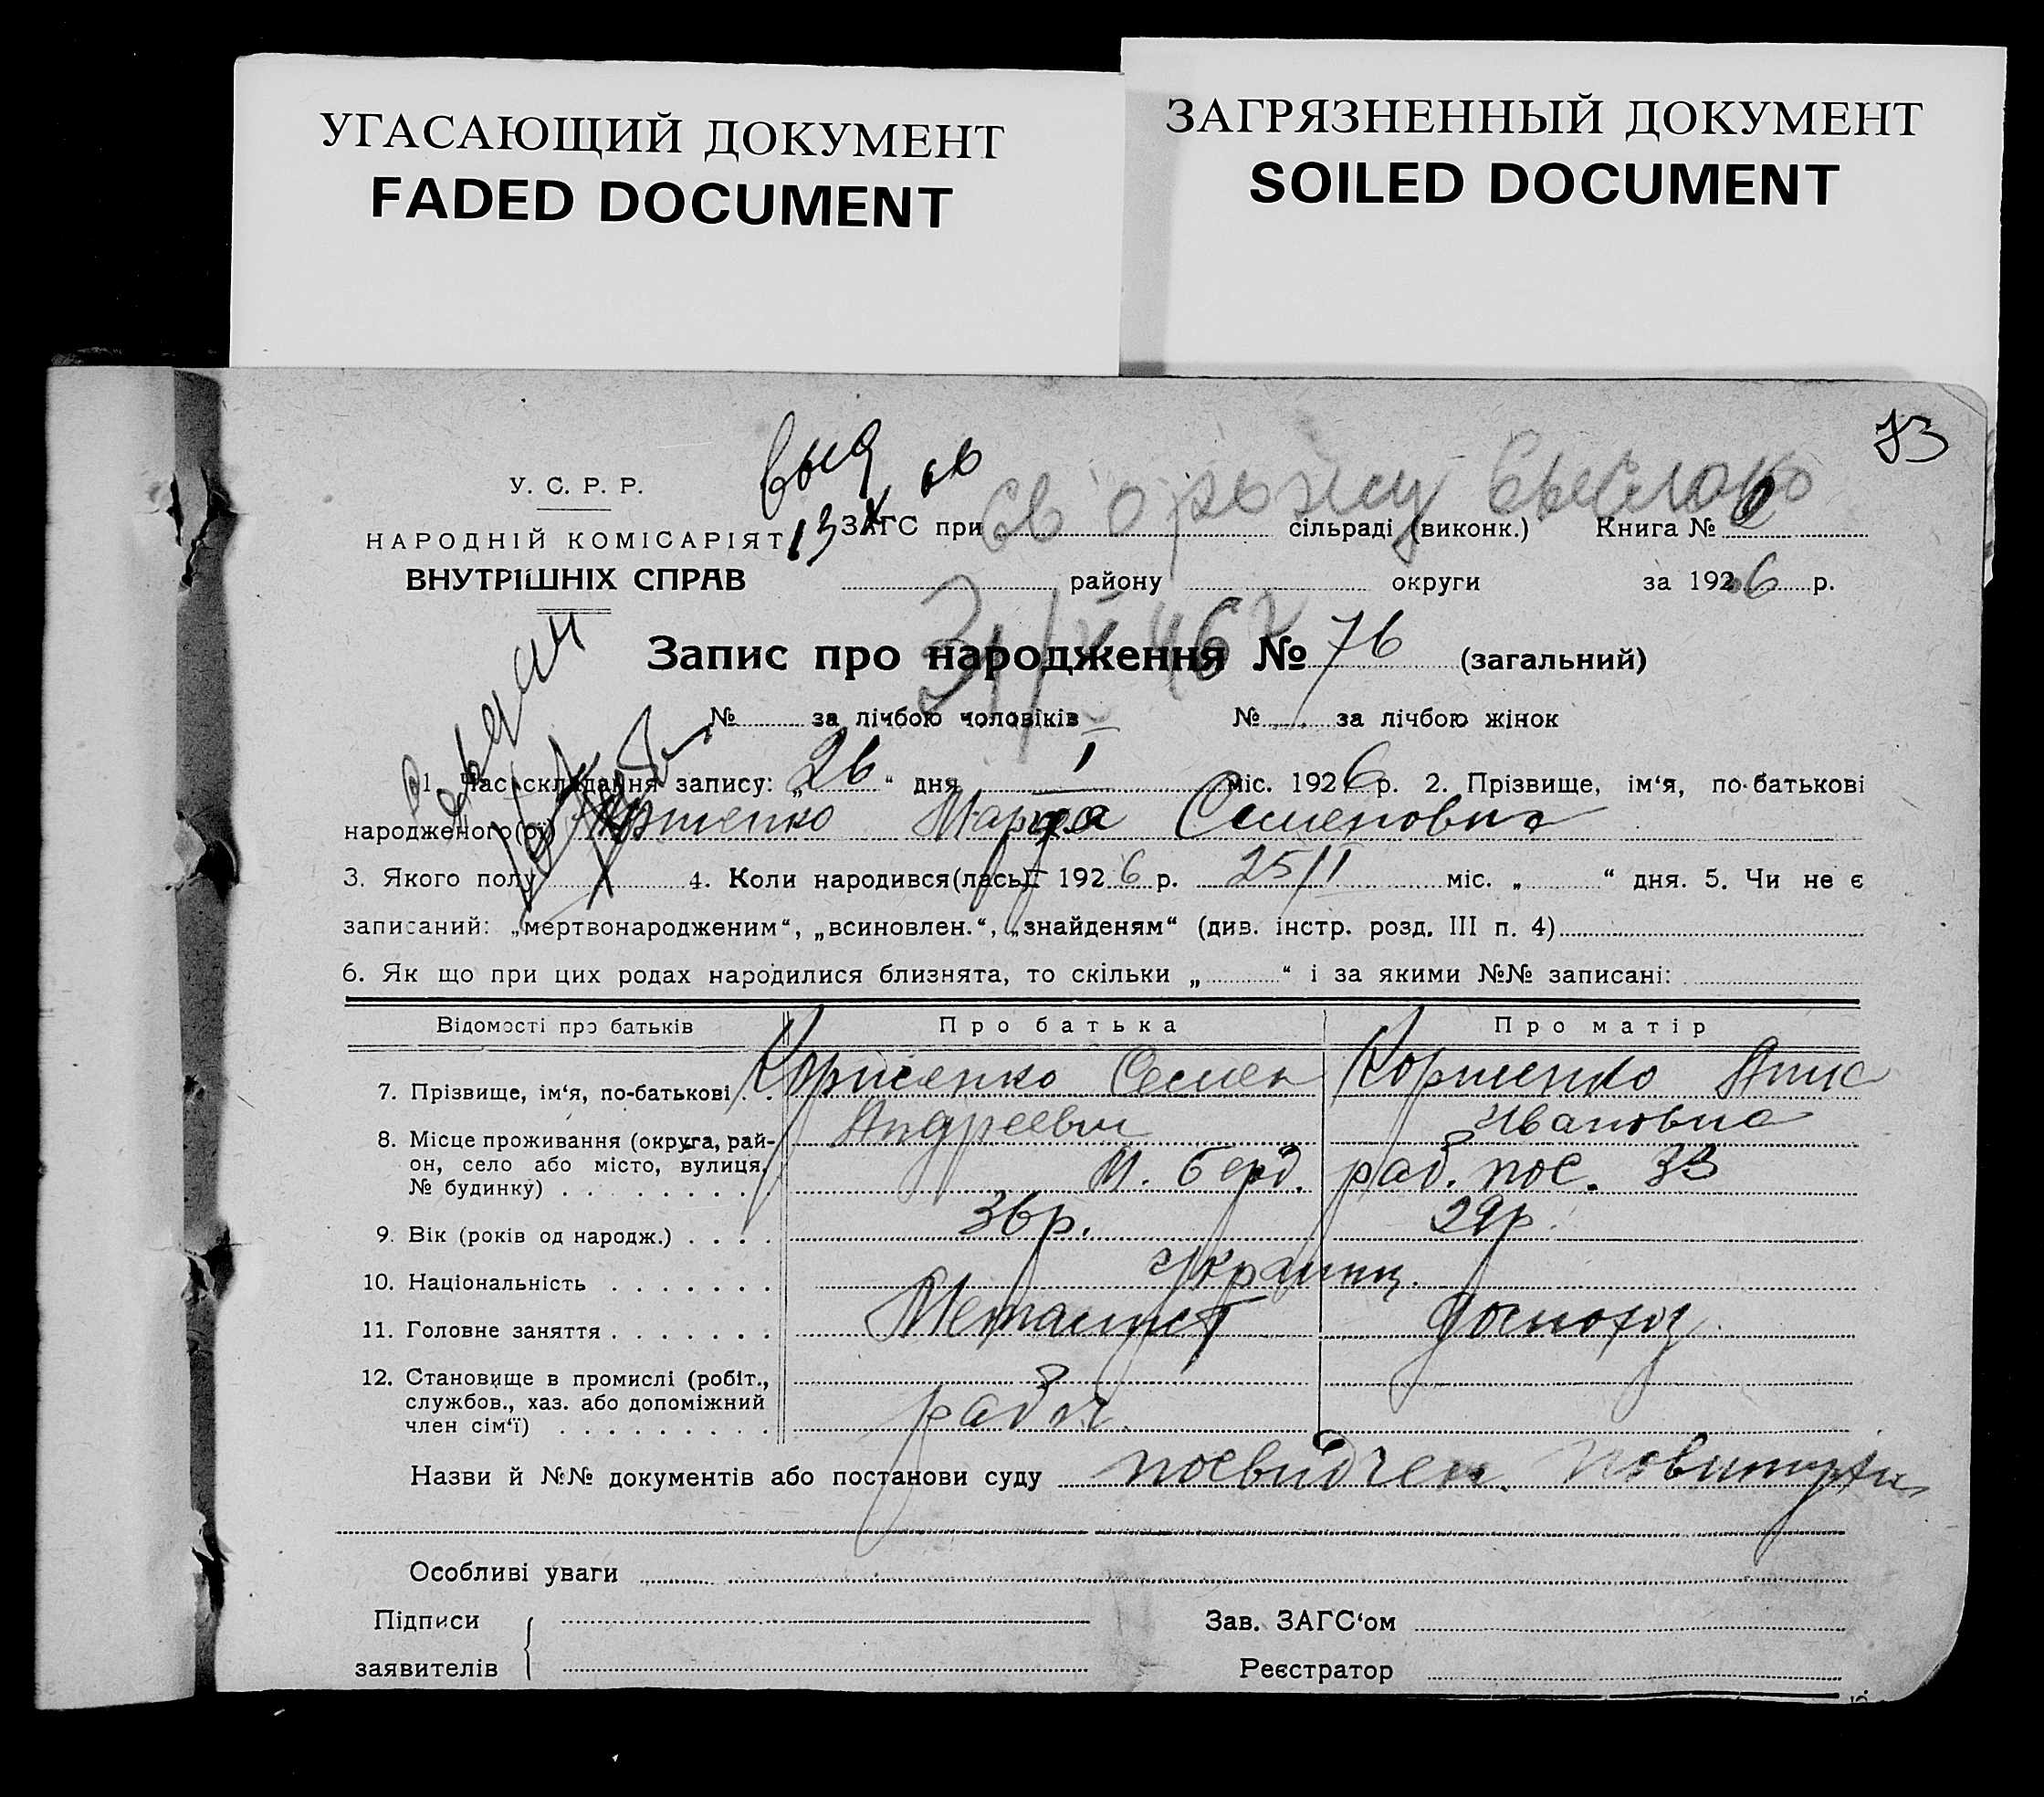 УГАСАЮЩИЙ ДОКУМЕНТ
FADED DOCUMENT
ЗАГРЯЗНЕННЫЙ ДОКУМЕНТ
SOILED DOCUMENT
73
У. С. Р. Р.
НАРОДНІЙ КОМІСАРІЯТ
ВНУТРІШНІХ СПРАВ
св о рожд выслано
ЗАГС при сільраді (виконк.) Книга №
району округи за 1926 р.
Запис про народження № 76 (загальний)
№ за лічбою чоловіків № за лічбою жінок
1. Час складання запису: „26“ дня I міс. 1926 р. 2. Прізвище, ім‘я, по-батькові
народженого(ої) Семеновна
3. Якого полу 4. Коли народився(лась) 1926 р. 25/I міс. „ “ дня. 5. Чи не є
записаний: „мертвонародженим“, „всиновлен.“, „знайденям“ (див. інстр. розд. III п. 4)
6. Як що при цих родах народилися близнята, то скільки „ “ і за якими №№ записані:
Відомості про батьків Про батька Про матір
7. Прізвище, ім‘я, по-батькові Коршенко Семен Коршенко Анна
Андреевич Ивановна
8. Місце проживання (округа, рай-
он, село або місто, вулиця,
№ будинку) М. Берд. раб. пос. 33
9. Вік (років од народж.) 36р. 29р.
10. Національність Украинц.
11. Головне заняття Металист
12. Становище в промислі (робіт.,
службов., хаз. або допоміжний
член сім‘ї) рабоч.
Назви й №№ документів або постанови суду посвидчен. повитухи
Особливі уваги
Підписи
заявителів
Зав. ЗАГС‘ом
Реєстратор